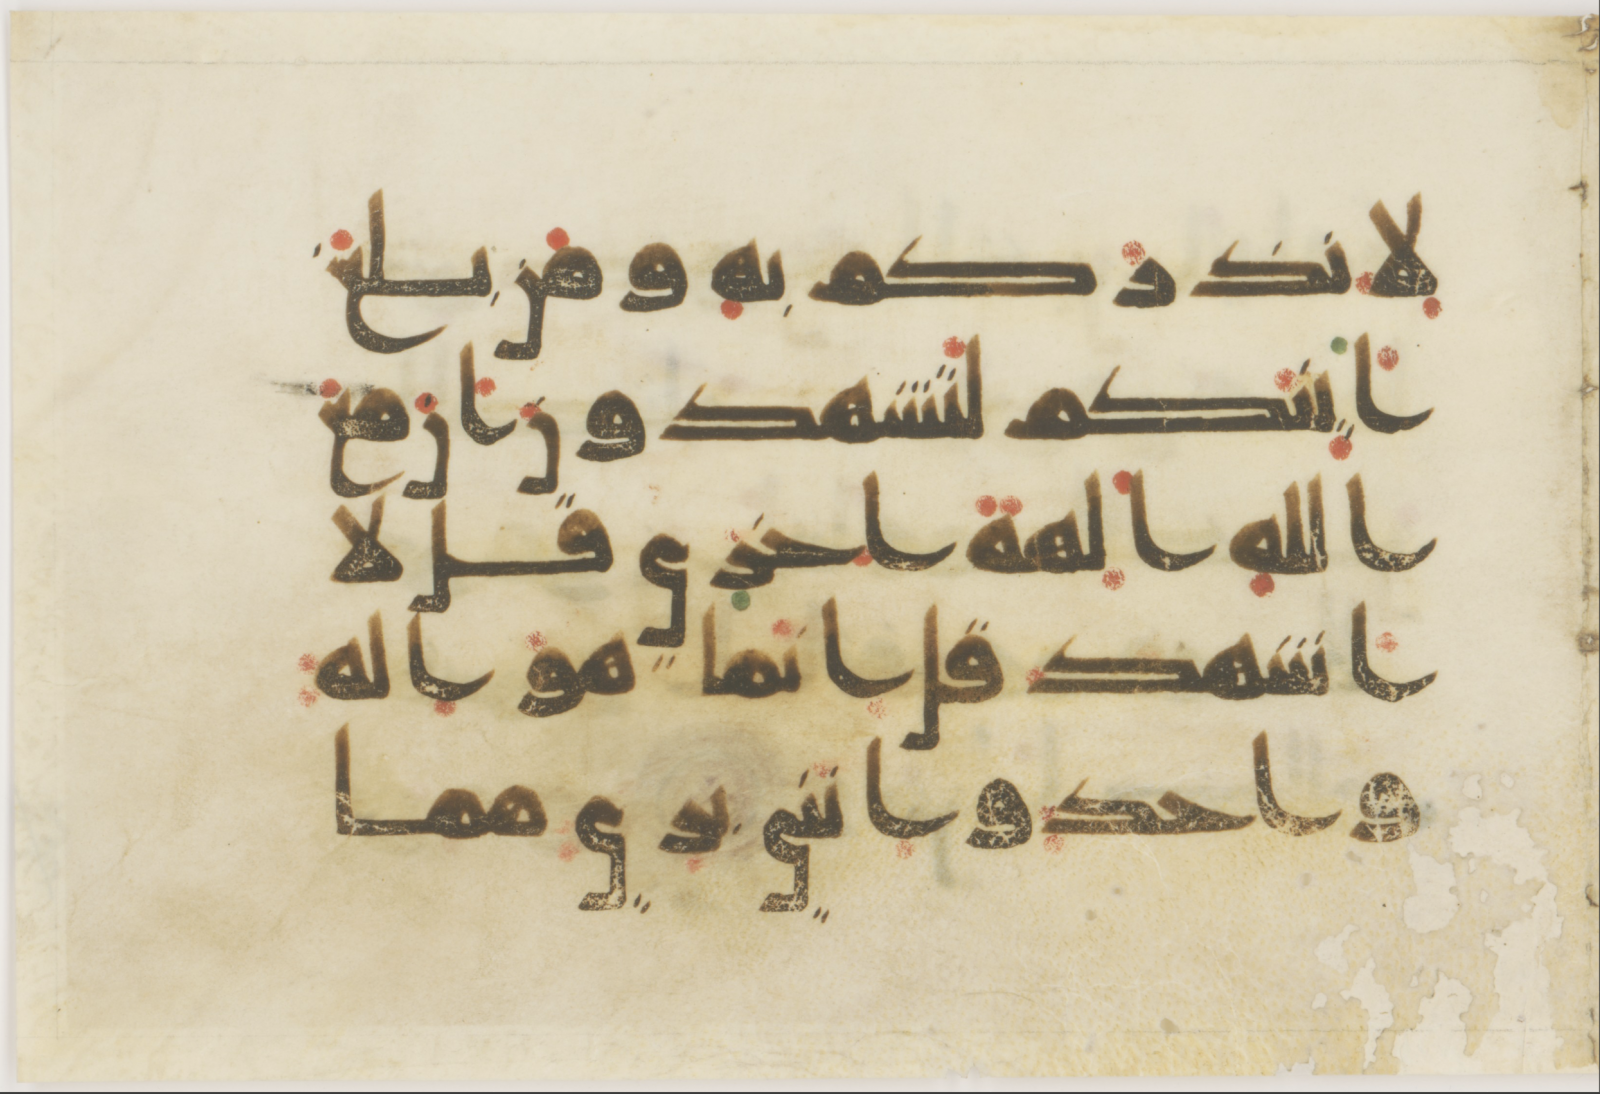 لانذركم به ومن بلغ
ا ىنكم لتشهدون ا ن مع
ا لله ا لهة ا خرى قل لا
ا شهد قل ا نما هو ا له
و ا حد و ا ننى برى مما